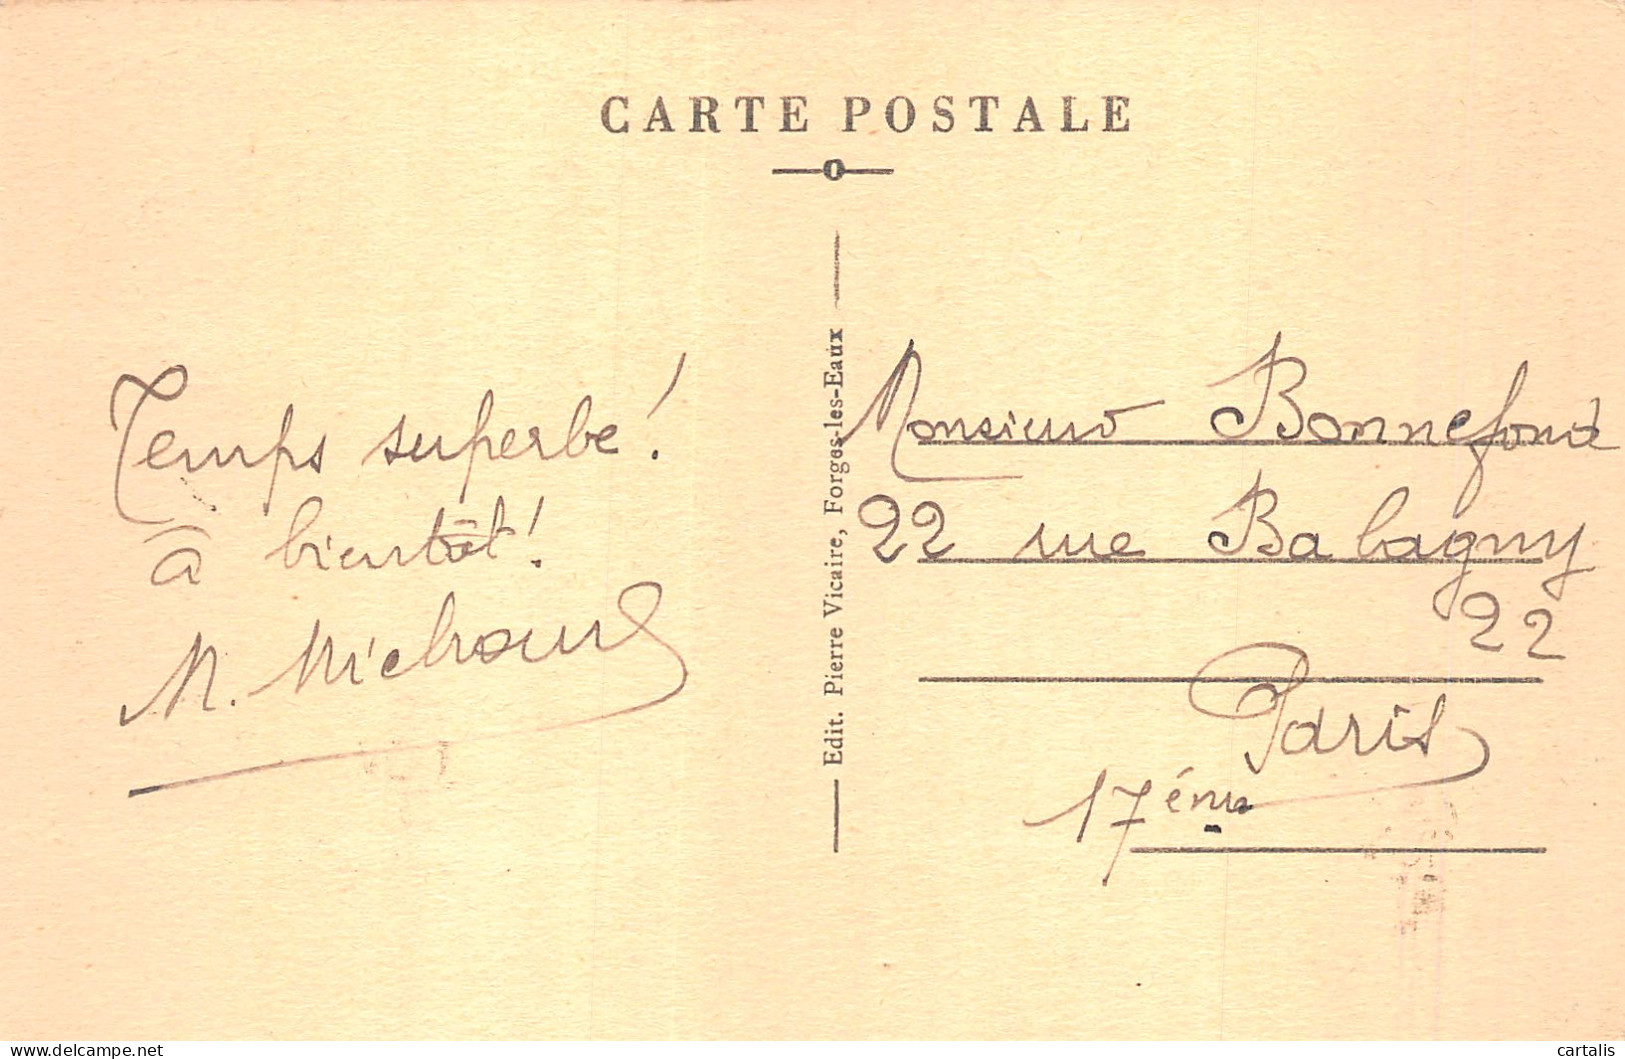 CARTE POSTALE
Temps superbe!
à bientôt!
M. Michaud
Edit. Pierre Vicaire, Forges-les-Eaux
Monsieur Bonnefond
22 rue Balagny
22
Paris
17ème
www.delcampe.net
cartalis